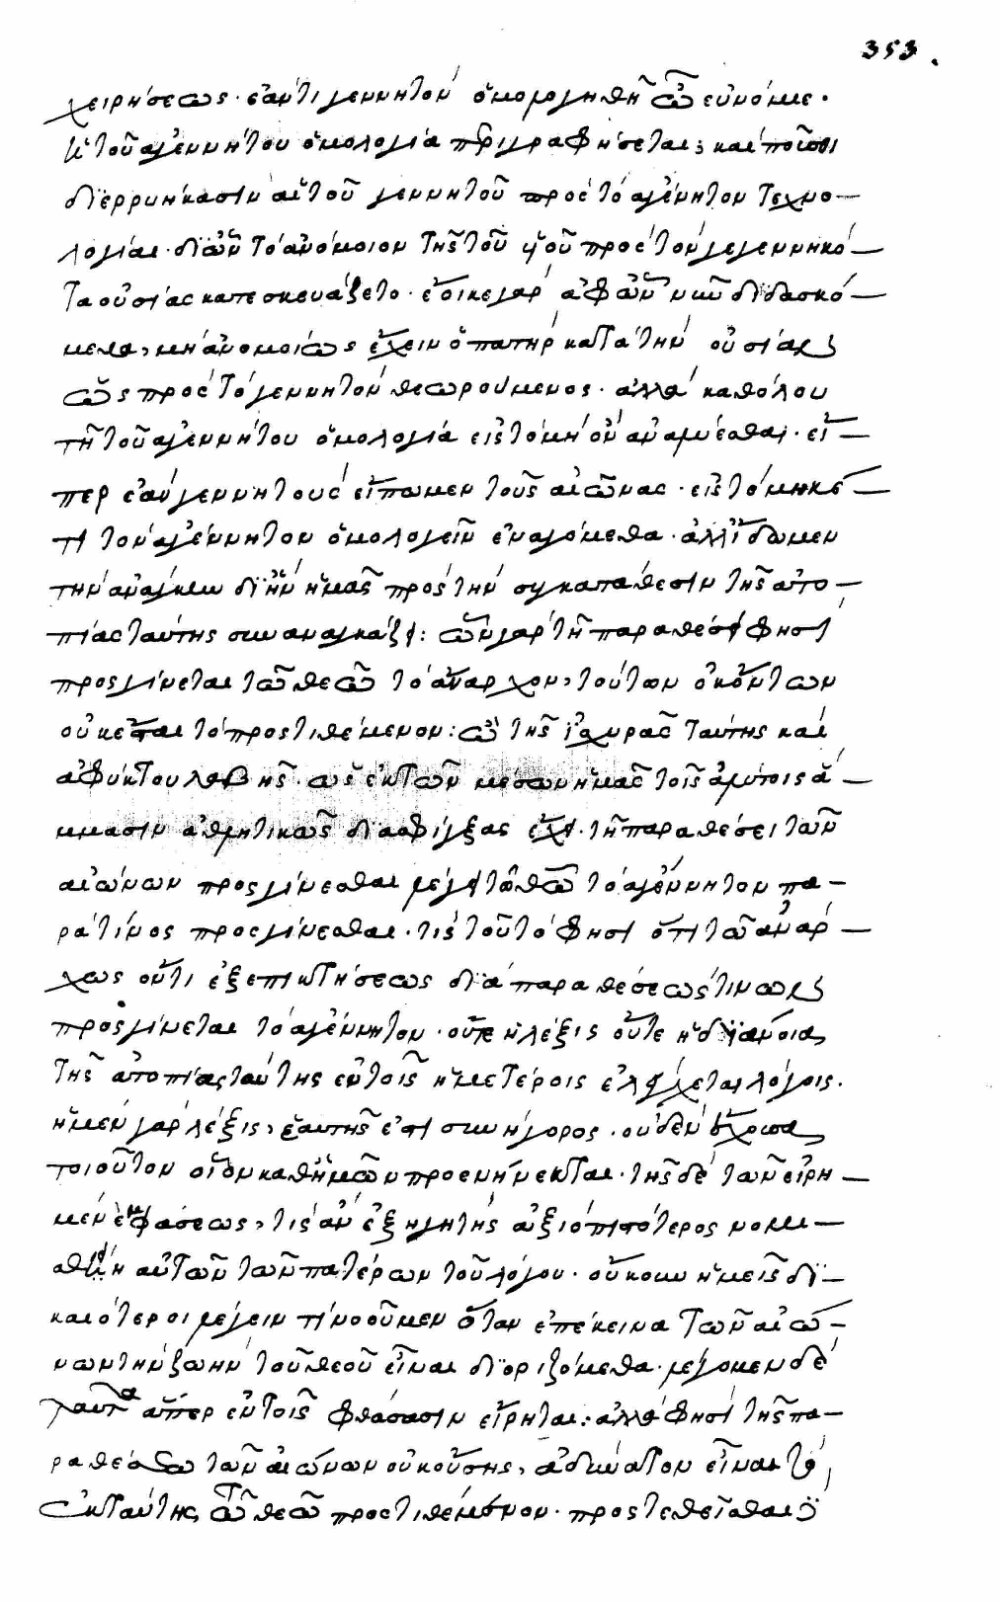 353.
χειρήσεως· ἐὰν τὶ γεννητὸν ὁμολογηθῇ ὦ εὐνόμιε·
ἡ τοῦ ἀγεννήτου ὁμολογία περιγραφήσεται; καὶ ποῦ σοι
διερρυήκασιν αἱ τοῦ γεννητοῦ πρὸς τὸ ἀγέννητον τεχνο–
λογίαι· δι' ὧν τὸ ἀνόμοιον τῆς τοῦ υἱοῦ πρὸς τὸν γεγεννηκό–
τα οὐσίας κατεσκευάζετο· ἔοικε γὰρ ἀφ' ὧν νῦν διδασκό–
μεθα, μὴ ἀνομοίως ἔχειν ὁ πατὴρ κατὰ τὴν οὐσίαν
ὡς πρὸς τὸ γεννητὸν θεωρούμενος· ἀλλὰ καθόλου
τῇ τοῦ ἀγεννήτου ὁμολογία εἰς τὸ μὴ ὂν ἀναλύεσθαι· εἴ–
περ ἐὰν γεννητοὺς εἴπωμεν τοὺς αἰῶνας· εἰς τὸ μηκέ–
τι τὸν ἀγέννητον ὁμολογεῖν ἐναγόμεθα· ἀλλ' ἴδωμεν
τὴν ἀνάγκην δι' ἣν ἡμᾶς πρὸς τὴν συγκατάθεσιν τῆς ἀτο–
πίας ταύτης συναναγκάζει: ὧν γὰρ τῇ παραθέσει φησὶ
προσγίνεται τῷ θεῷ τὸ ἄναρχον, τούτων οὐκ ὄντων
οὐκ ἔσται τὸ προστιθέμενον: ὢ τῆς ἰσχυρᾶς ταύτης καὶ
ἀφύκτου λαβῆς· ὡς ἐκ τῶν μέσων ἡμᾶς τοῖς ἀλύτοις ἅ–
μμασιν ἀθλητικῶς διασφίγξας ἔχει· τῇ παραθέσει τῶν
αἰώνων προσγίνεσθαι λέγει τῷ θεῷ τὸ ἀγέννητον πα–
ρὰ τίνος προσγίνεσθαι· τίς τοῦτό φησι ὅτι τῷ ἀνάρ–
χως ὄντι ἐξ ἐπικτήσεως διὰ παραθέσεως τινῶν
προσγίνεται τὸ ἀγέννητον· οὔτε ἡ λέξις οὔτε ἡ διάνοια
τῆς ἀτοπίας ταύτης ἐν τοῖς ἡμετέροις ἐλέγχεται λόγοις·
ἡ μὲν γὰρ λέξις, ἑαυτῆς ἐστι συνήγορος· οὐδὲν ἔχουσα
τοιοῦτον οἷον καθ' ἡμῶν προενήνεκται· τῆς δὲ τῶν εἰρη–
μένων ἐμφάσεως, τίς ἂν ἐξηγητὴς ἀξιοπιστότερος νομι–
σθείη αὐτῶν τῶν πατέρων τοῦ λόγου· οὐκοῦν ἡμεῖς δι–
καιότεροι λέγειν τί νοοῦμεν ὅταν ἐπέκεινα τῶν αἰώ–
νων τὴν ζωὴν τοῦ θεοῦ εἶναι διοριζόμεθα· λέγομεν δὲ
ταῦτα ἅπερ ἐν τοῖς φθάσασιν εἴρηται: ἀλλά φησι τῆς πα–
ραθέσεως τῶν αἰώνων οὐκ οὔσης, ἀδύνατον εἶναι τὸ
ἐκ ταύτης τῷ θεῷ προστιθέμενον· προστεθεῖσθαι